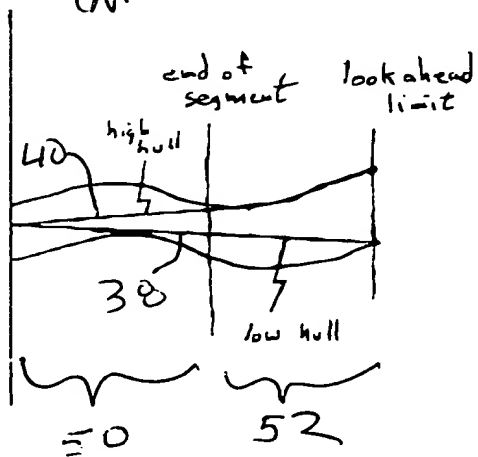 end of
segment
look ahead
limit
high
hull
40
38
low hull
50
52